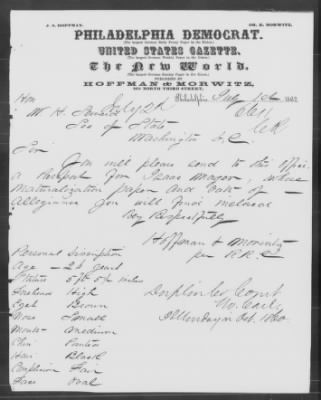 J. S. HOFFMAN. DR. E. MORWITZ.
PHILADELPHIA DEMOCRAT.
(The largest German Daily Paper in the Union.)
UNITED STATES GAZETTE.
(The largest German Weekly Paper in the Union.)
The New World.
(The largest German Sunday Paper in the Union.)
PUBLISHED BY
HOFFMAN & MORWITZ,
NORTH THIRD STREET,
Philadelphia, 1862
Hon
W. H. Seward
Sec of State
Washington D.C.
Sir
You will please send to this Office
a Passport for Isaac Mayor, whose
Naturalization paper and Oath of
Allegiance you will find inclosed
Very Respectfully
Hoffman & Morwitz
per
Personal Discription
Age — 26 years
Stature 5 ft 5 1/4 inches
Forehead High
Eyes Brown
Nose Small
Mouth Medium
Chin Pointed
Hair Black
Complexion Fair
Face Oval
Duplin Co Court
No Carl
Oct. 1860